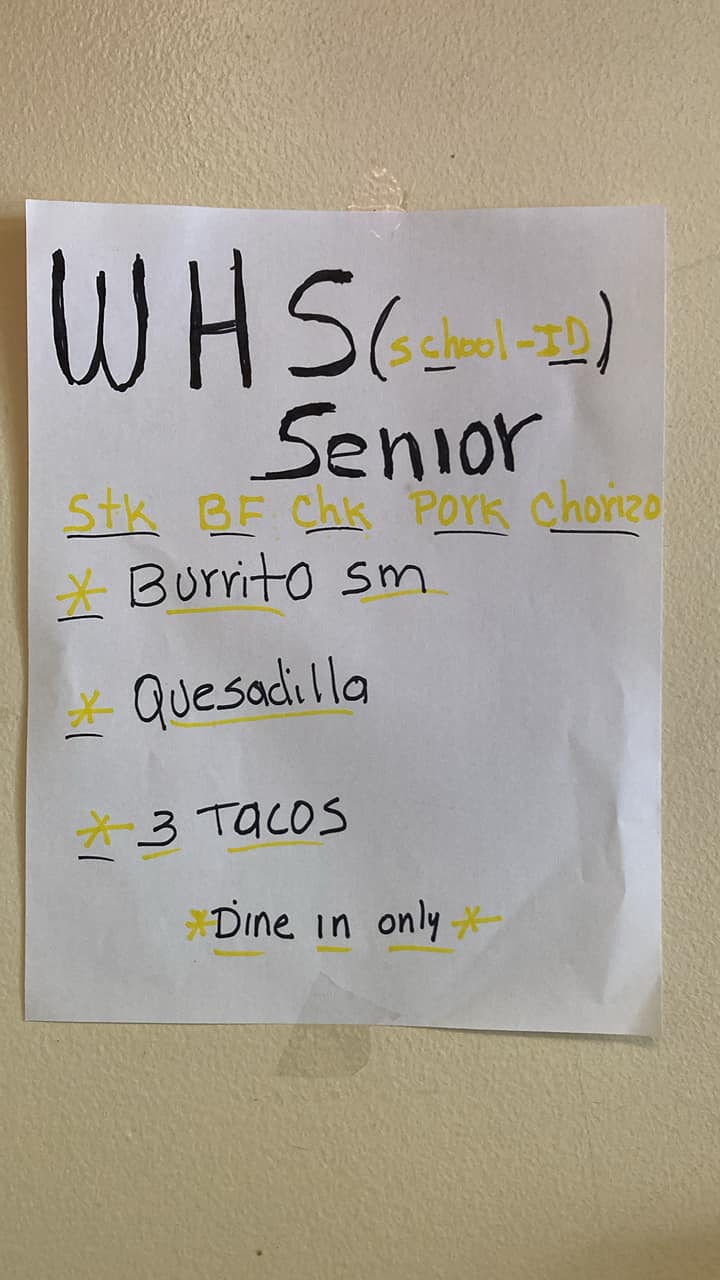 WHS (school-ID)
Senior
Stk BF Chk Pork Chorizo
* Burrito sm
* Quesadilla
* 3 Tacos
*Dine in only*